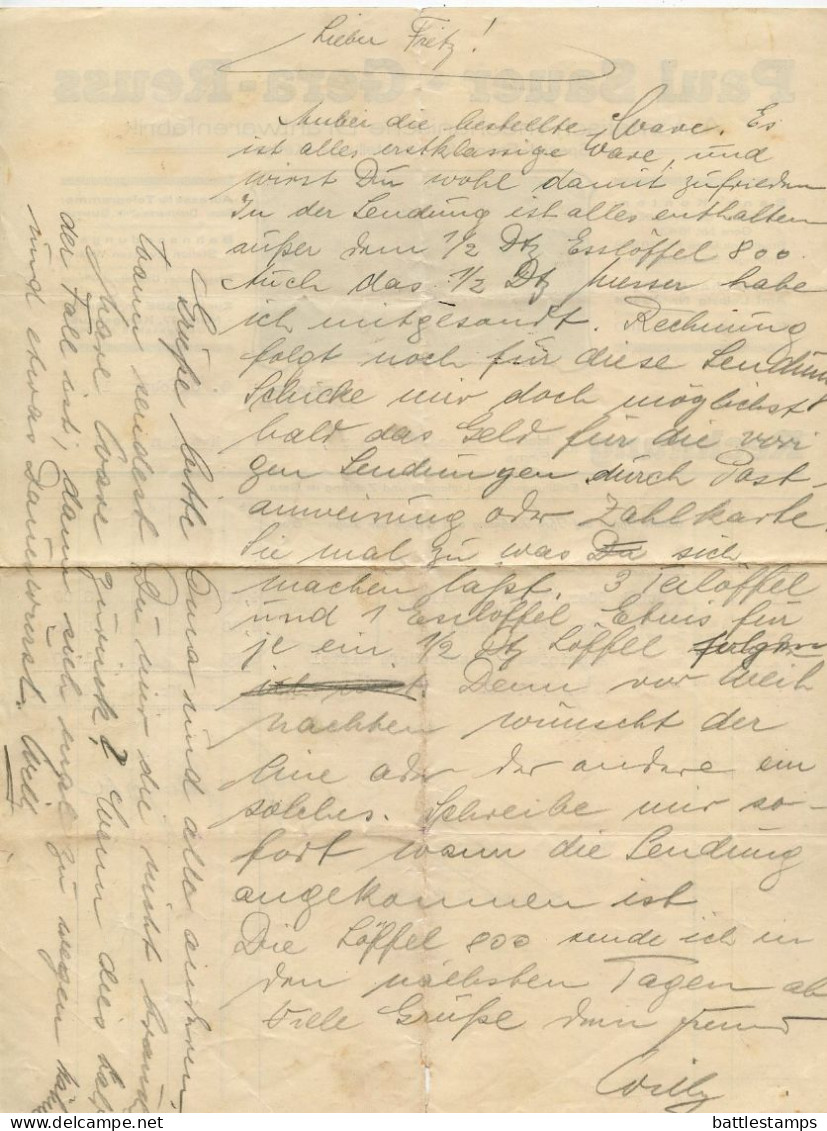 Lieber Fritz!
Anbei die bestellte Ware. Es
ist alles erstklassige Ware, und
wirst Du wohl damit zufrieden
In der Sendung ist alles enthalten
außer dem 1/2 Dtz Esslöffel 800.
Auch das 1/2 Dtz Messer habe
ich mitgesandt. Rechnung
folgt noch für diese Sendung
Schicke mir doch möglichst
bald das Geld für die vori
gen Sendungen durch Post-
anweisung oder Zahlkarte.
Sie mal zu was Da sich
machen laßt. 3 Teelöffel
und 1 Esslöffel Etuis für
je ein 1/2 Dtz Löffel folgen
Denn vor Weih
nachten wünscht der
eine oder der andere ein
solches. Schreibe mir so-
fort wann die Sendung
angekommen ist
Die Löffel 800 sende ich in
den nächsten Tagen ab
Viele Grüße dein Freund
Willy
Grüße bitte Oma und alle anderen
Wann sendest Du mir die nicht
Ware zurück? Wenn dies
der Fall ist, dann sich zu wegen
und etwas Dauerwurst. Will
Paul Sauer - Gera-Reuss
battlestamps